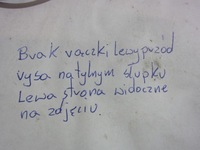 Brak rączki lewy przód
rysa na tylnym słupku
Lewa strona widoczne
na zdjęciu.